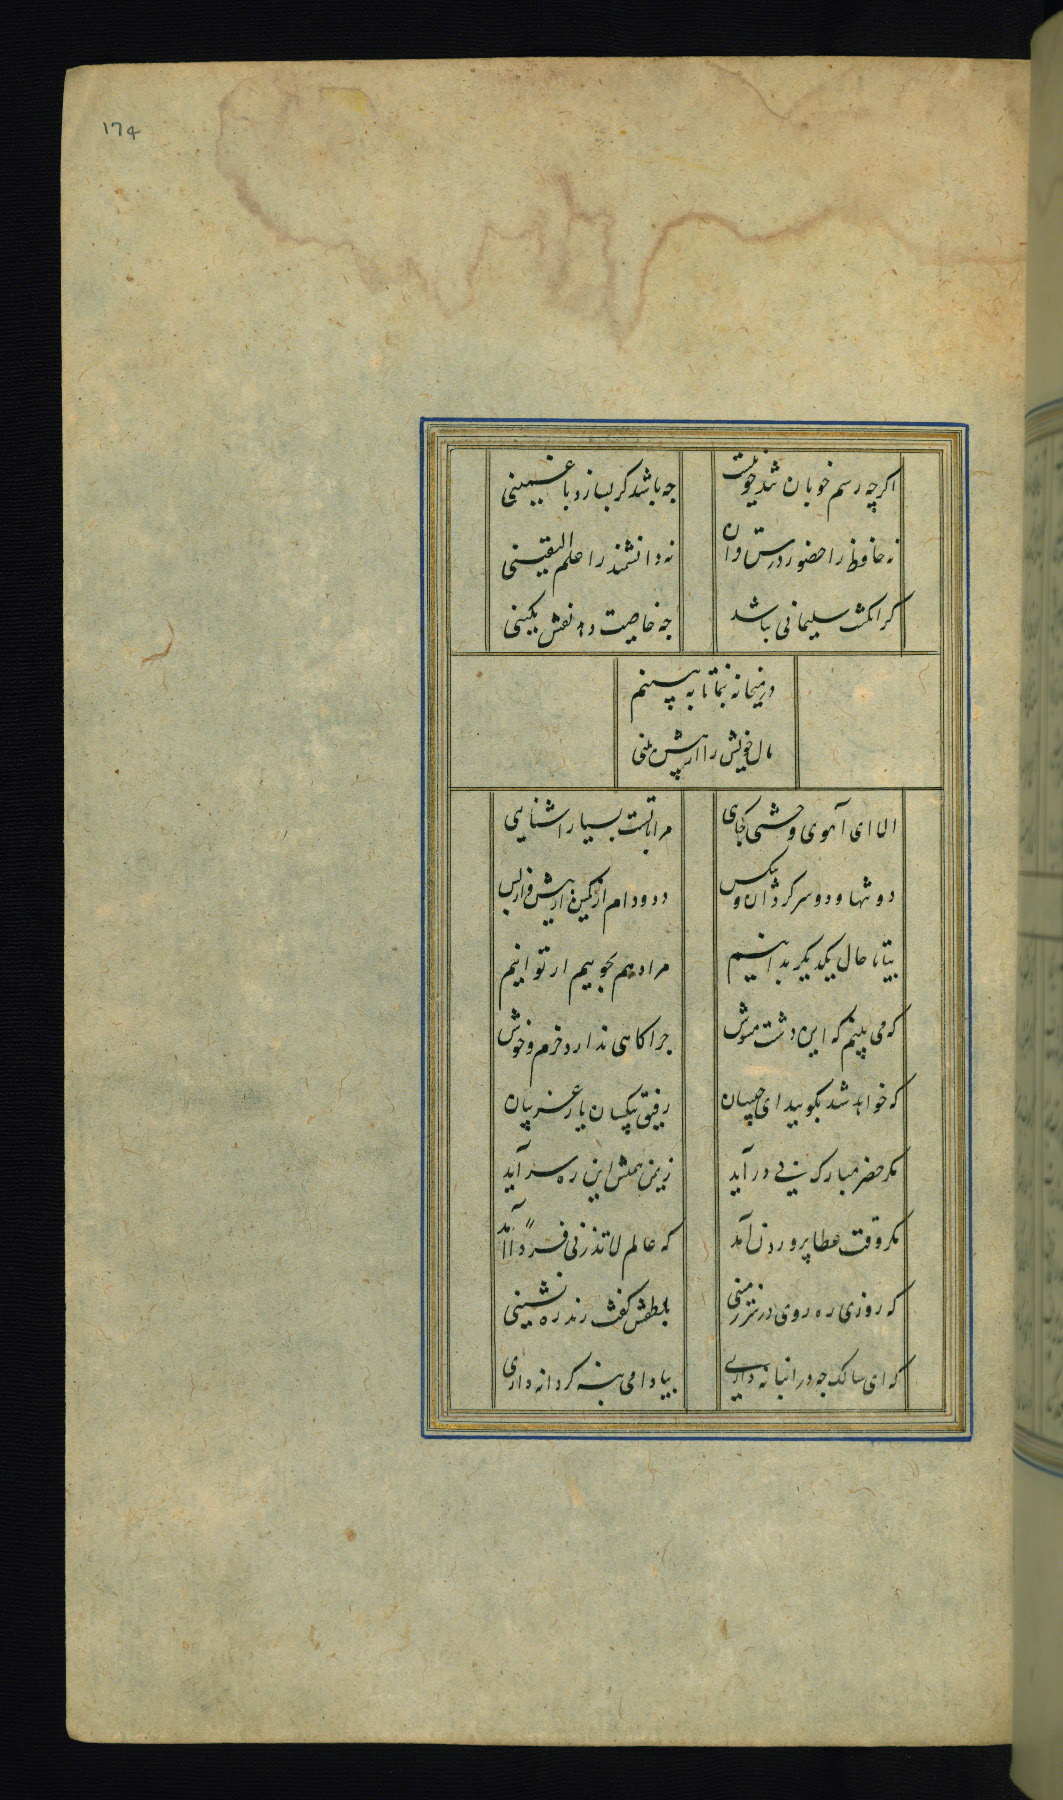 ۱۷۴
اگرچه رسم خوبان تندخوئیست چه باشد گر بسازد با غمینی
نه حافظ را حضور درس و ان نه دانشمند را علم الیقینی
گر انکشت سلیمانی باشد چه خاصیت دهد نقش نکینی
در میخانه بنما تا بپرسم
مال خویش را از پیش بینی
الا ای آهوی وحشی کجای مرا با تست بسیار اشنایی
دو تنها و دو سرکردان و بیکس دد و دام از کمین از پیش و از پس
بیا تا حال یکدیگر بدانیم مراد هم بجوییم ار توانیم
که می بینم که این دشت مشوش چراکاهی ندارد خرم و خوش
که خواهد شد بکویید ای حبیبان رفیق بیکسان یار غریبان
مکر خضر مبارک پی در آید ز یمن همتش این ره سر آید
مکر وقت عطا پروردن آمد که عالم لا تذرنی فردا آمد
که روزی ره روی در سرزمینی بلطفش کفت رند ره نشینی
که ای سالک چه در انبانه داری بیا دامی بنه کر دانه داری